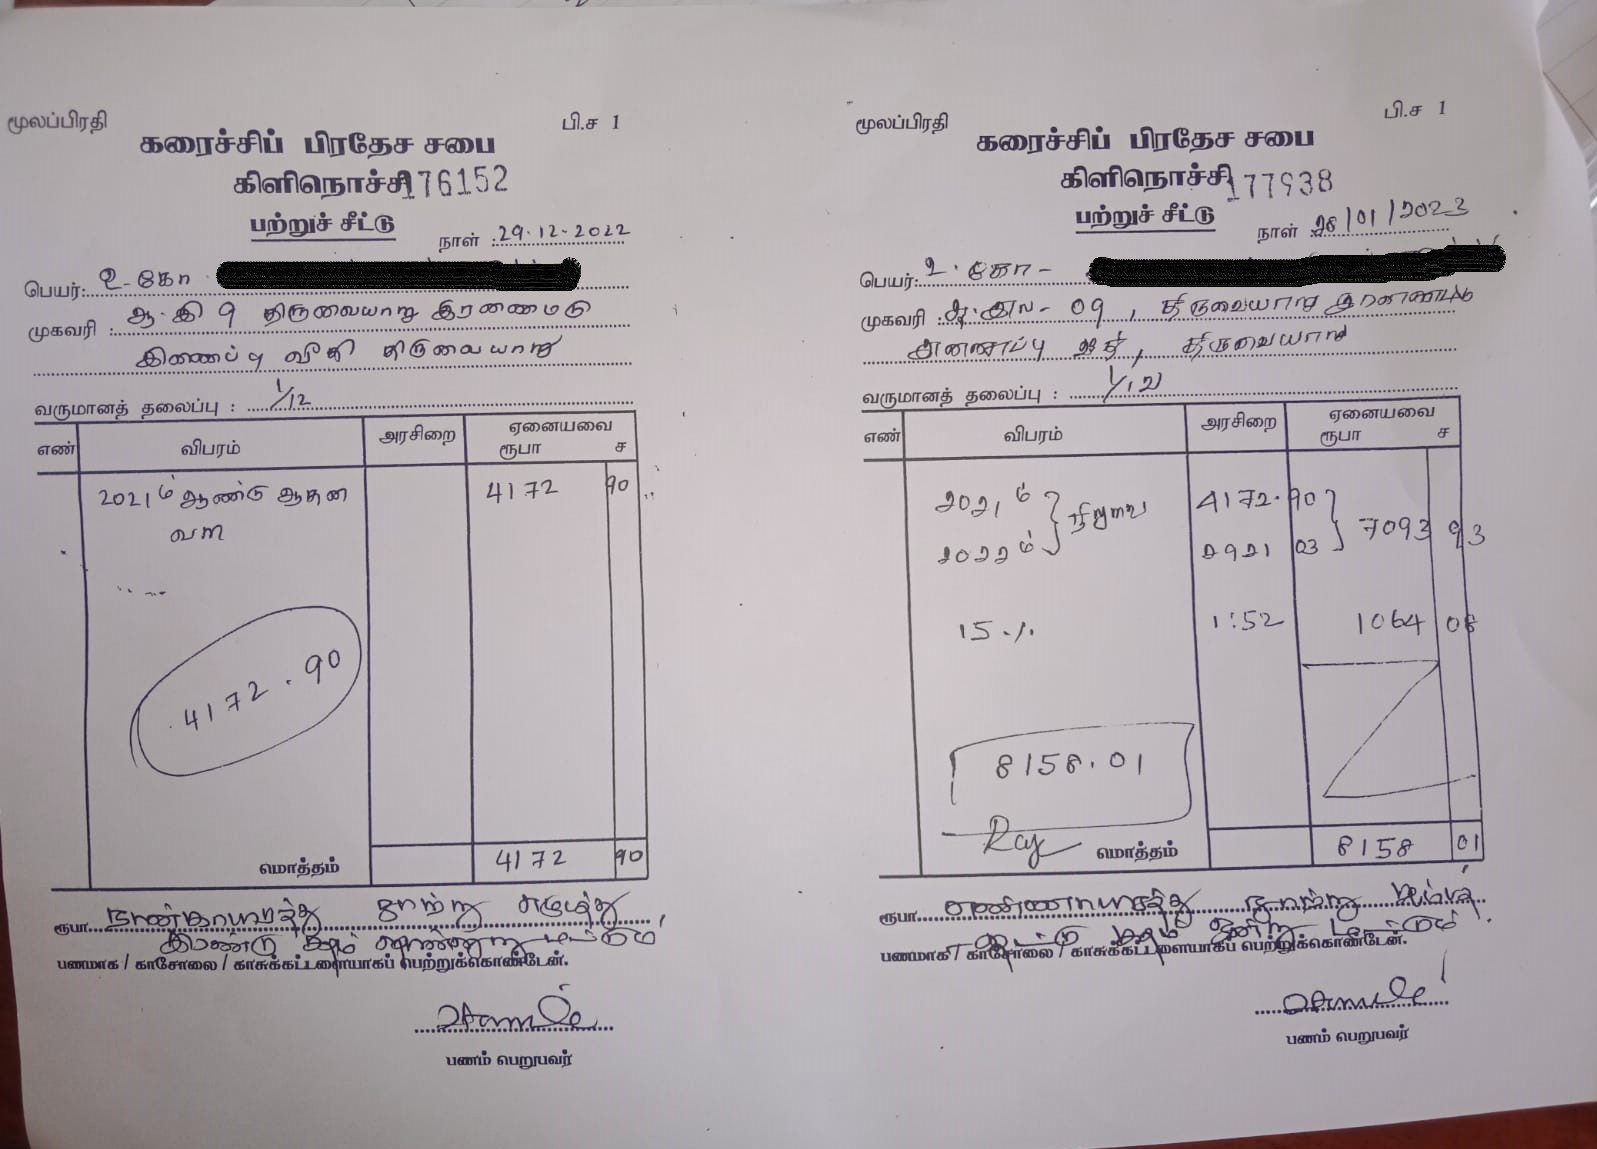 மூலப்பிரதி
பி.ச 1
கரைச்சிப் பிரதேச சபை
கிளிநொச்சி 176152
பற்றுச் சீட்டு
நாள் : 29.12.2022
பெயர்: உ. கோ
முகவரி : ஆ.இ 9 திருவையாறு இரணைமடு
இணைப்பு வீதி திருவையாறு
வருமானத் தலைப்பு : 1/12
எண் விபரம் அரசிறை ஏனையவை
ரூபா ச
2021ம் ஆண்டு ஆதன 4172 90
வரி
4172.90
மொத்தம் 4172 90
ரூபா நான்காயிரத்து நூற்று எழுபத்து
இரண்டு சதம்
பணமாக / காசோலை / காசுக்கட்டளையாகப் பெற்றுக்கொண்டேன்.
பணம் பெறுபவர்
மூலப்பிரதி
பி.ச 1
கரைச்சிப் பிரதேச சபை
கிளிநொச்சி 177938
பற்றுச் சீட்டு
நாள் : 28/01/2023
பெயர்: உ. கோ -
முகவரி : 09, திருவையாறு
வீதி, திருவையாறு
வருமானத் தலைப்பு : 1/12
எண் விபரம் அரசிறை ஏனையவை
ரூபா ச
2021ம் } நிலுவை 4172.90 } 7093 93
2022ம் 2921 03
15 % 1:52 1064 08
8158.01
Ray
மொத்தம் 8158 01
ரூபா எண்ணாயிரத்து நூற்று ஐம்பத்து
எட்டு சதம் ஒன்று மட்டும்
பணமாக / காசோலை / காசுக்கட்டளையாகப் பெற்றுக்கொண்டேன்.
பணம் பெறுபவர்